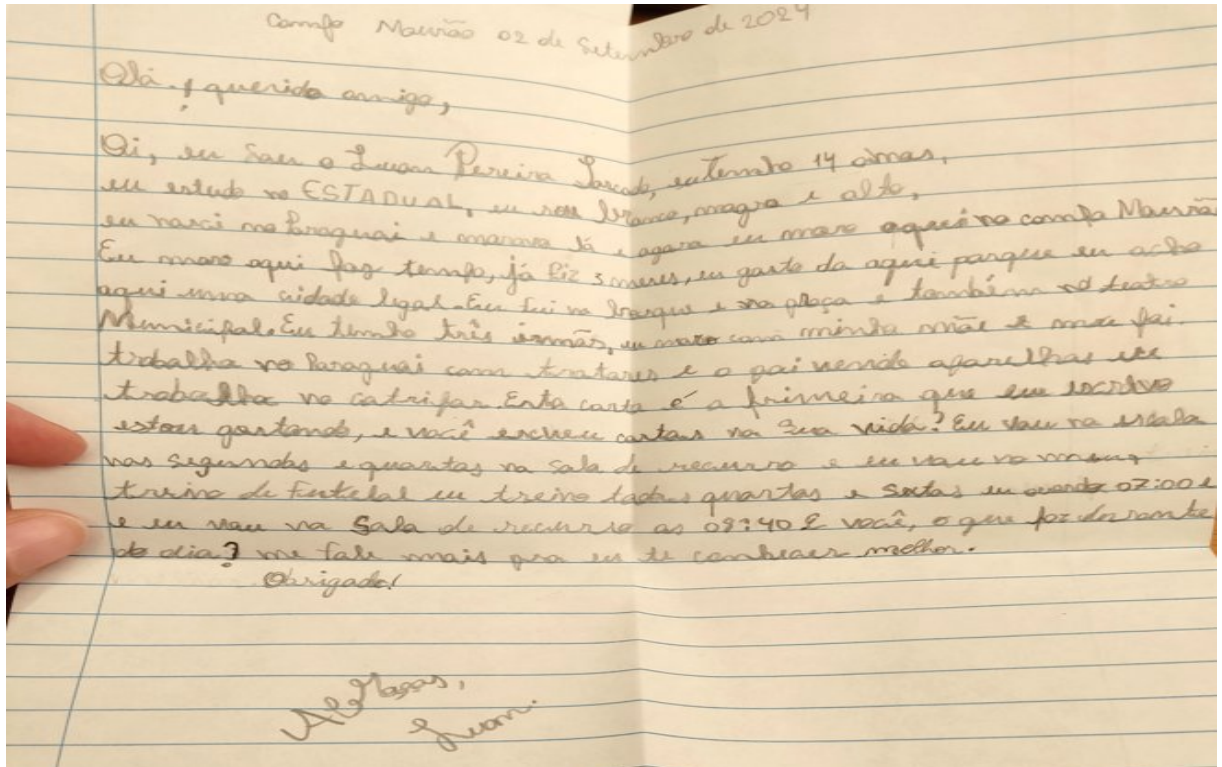 Campo Mourão 02 de Setembro de 2024
Olá, querido amigo,
Oi, eu Sou o Luan Pereira eu tenho 14 anos,
eu estudo no ESTADUAL, eu sou branco, magro e alto,
eu nasci no Paraguai e morava lá e agora eu moro aqui no campo Mourão
Eu moro aqui faz tempo, já fiz 3 meses, eu gosto da aqui porque eu acho
aqui uma cidade legal. Eu fui no bosque e na praça e também no teatro
Municipal. Eu tenho três irmãos, eu moro com minha mãe e meu pai
trabalha no Paraguai com tratores e o pai vende aparelhos ele
trabalha no Esta carta é a primeira que eu escrevo
estou gostando, e você escreveu cartas na sua vida? Eu vou na escola
nas segundas e quartas na Sala de recurso e eu vou no meu
treino de Futebol eu treino quartas e sextas eu acordo 07:00 e
e eu vou na Sala de recurso as 08:40 E você, o que faz durante
do dia? me fale mais pra eu te conhecer melhor.
Obrigado!
Abraços,
Luan.